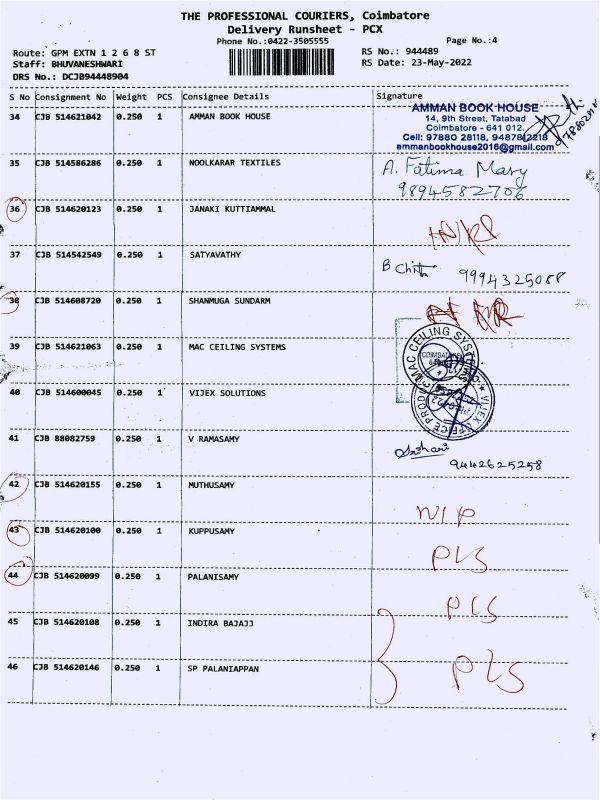 THE PROFESSIONAL COURIERS, Coimbatore
Delivery Runsheet - PCX
Phone No.:0422-3505555
Page No.:4
Route: GPM EXTN 1 2 6 8 ST
RS No.: 944489
Staff: BHUVANESHWARI
RS Date: 23-May-2022
DRS No.: DCJB94448904
S No Consignment No Weight PCS Consignee Details Signature
34 CJB 514621042 0.250 1 AMMAN BOOK HOUSE
AMMAN BOOK HOUSE
14, 9th Street, Tatabad
Coimbatore - 641 012.
Cell: 97880 28118, 9487812218
ammanbookhouse2016@gmail.com
35 CJB 514586286 0.250 1 NOOLKARAR TEXTILES
A. Fatima Mary
9894582706
36 CJB 514620123 0.250 1 JANAKI KUTTIAMMAL
37 CJB 514542549 0.250 1 SATYAVATHY
B Chith 9994325088
38 CJB 514608720 0.250 1 SHANMUGA SUNDARM
39 CJB 514621063 0.250 1 MAC CEILING SYSTEMS
MAC CEILING SYSTEMS
40 CJB 514600045 0.250 1 VIJEX SOLUTIONS
VIJEX OFFICE PRODU
41 CJB 88082759 0.250 1 V RAMASAMY
9442625258
42 CJB 514620155 0.250 1 MUTHUSAMY
N/P
43 CJB 514620100 0.250 1 KUPPUSAMY
PLS
44 CJB 514620099 0.250 1 PALANISAMY
PLS
45 CJB 514620108 0.250 1 INDIRA BAJAJJ
46 CJB 514620146 0.250 1 SP PALANIAPPAN
PLS